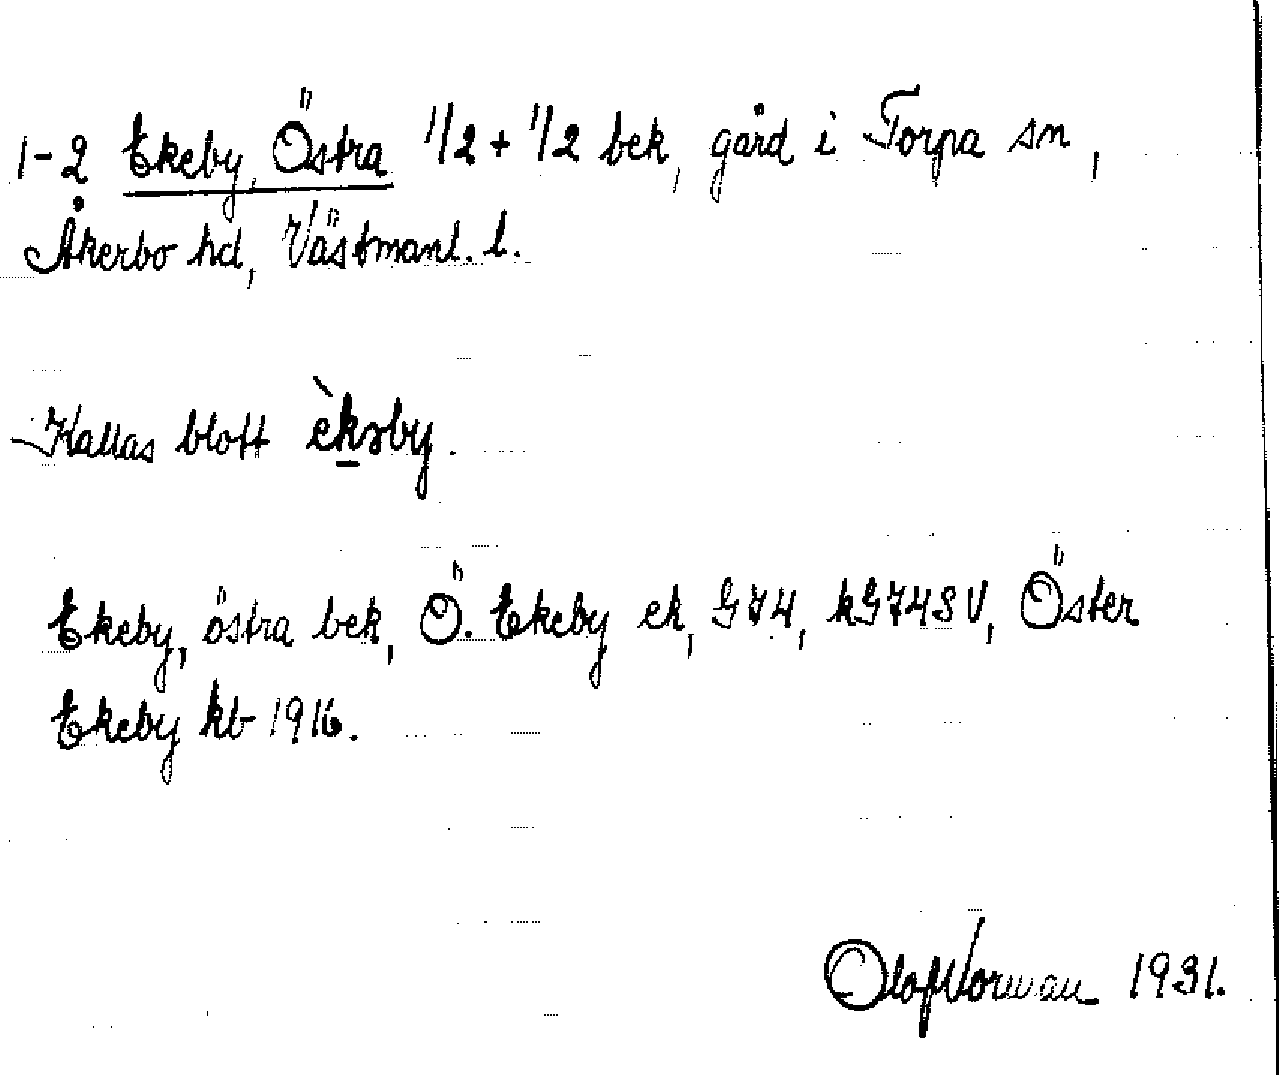 1-2 Ekeby, Östra 1/2 + 1/2 bek, gård i Torpa sn,
Åkerbo hd, Västmanl. l.
Kallas blott èksby.
Ekeby, östra bek, Ö. Ekeby ek, G74, kG74SV, Öster
Ekeby kb 1916.
Olof Norman 1931.